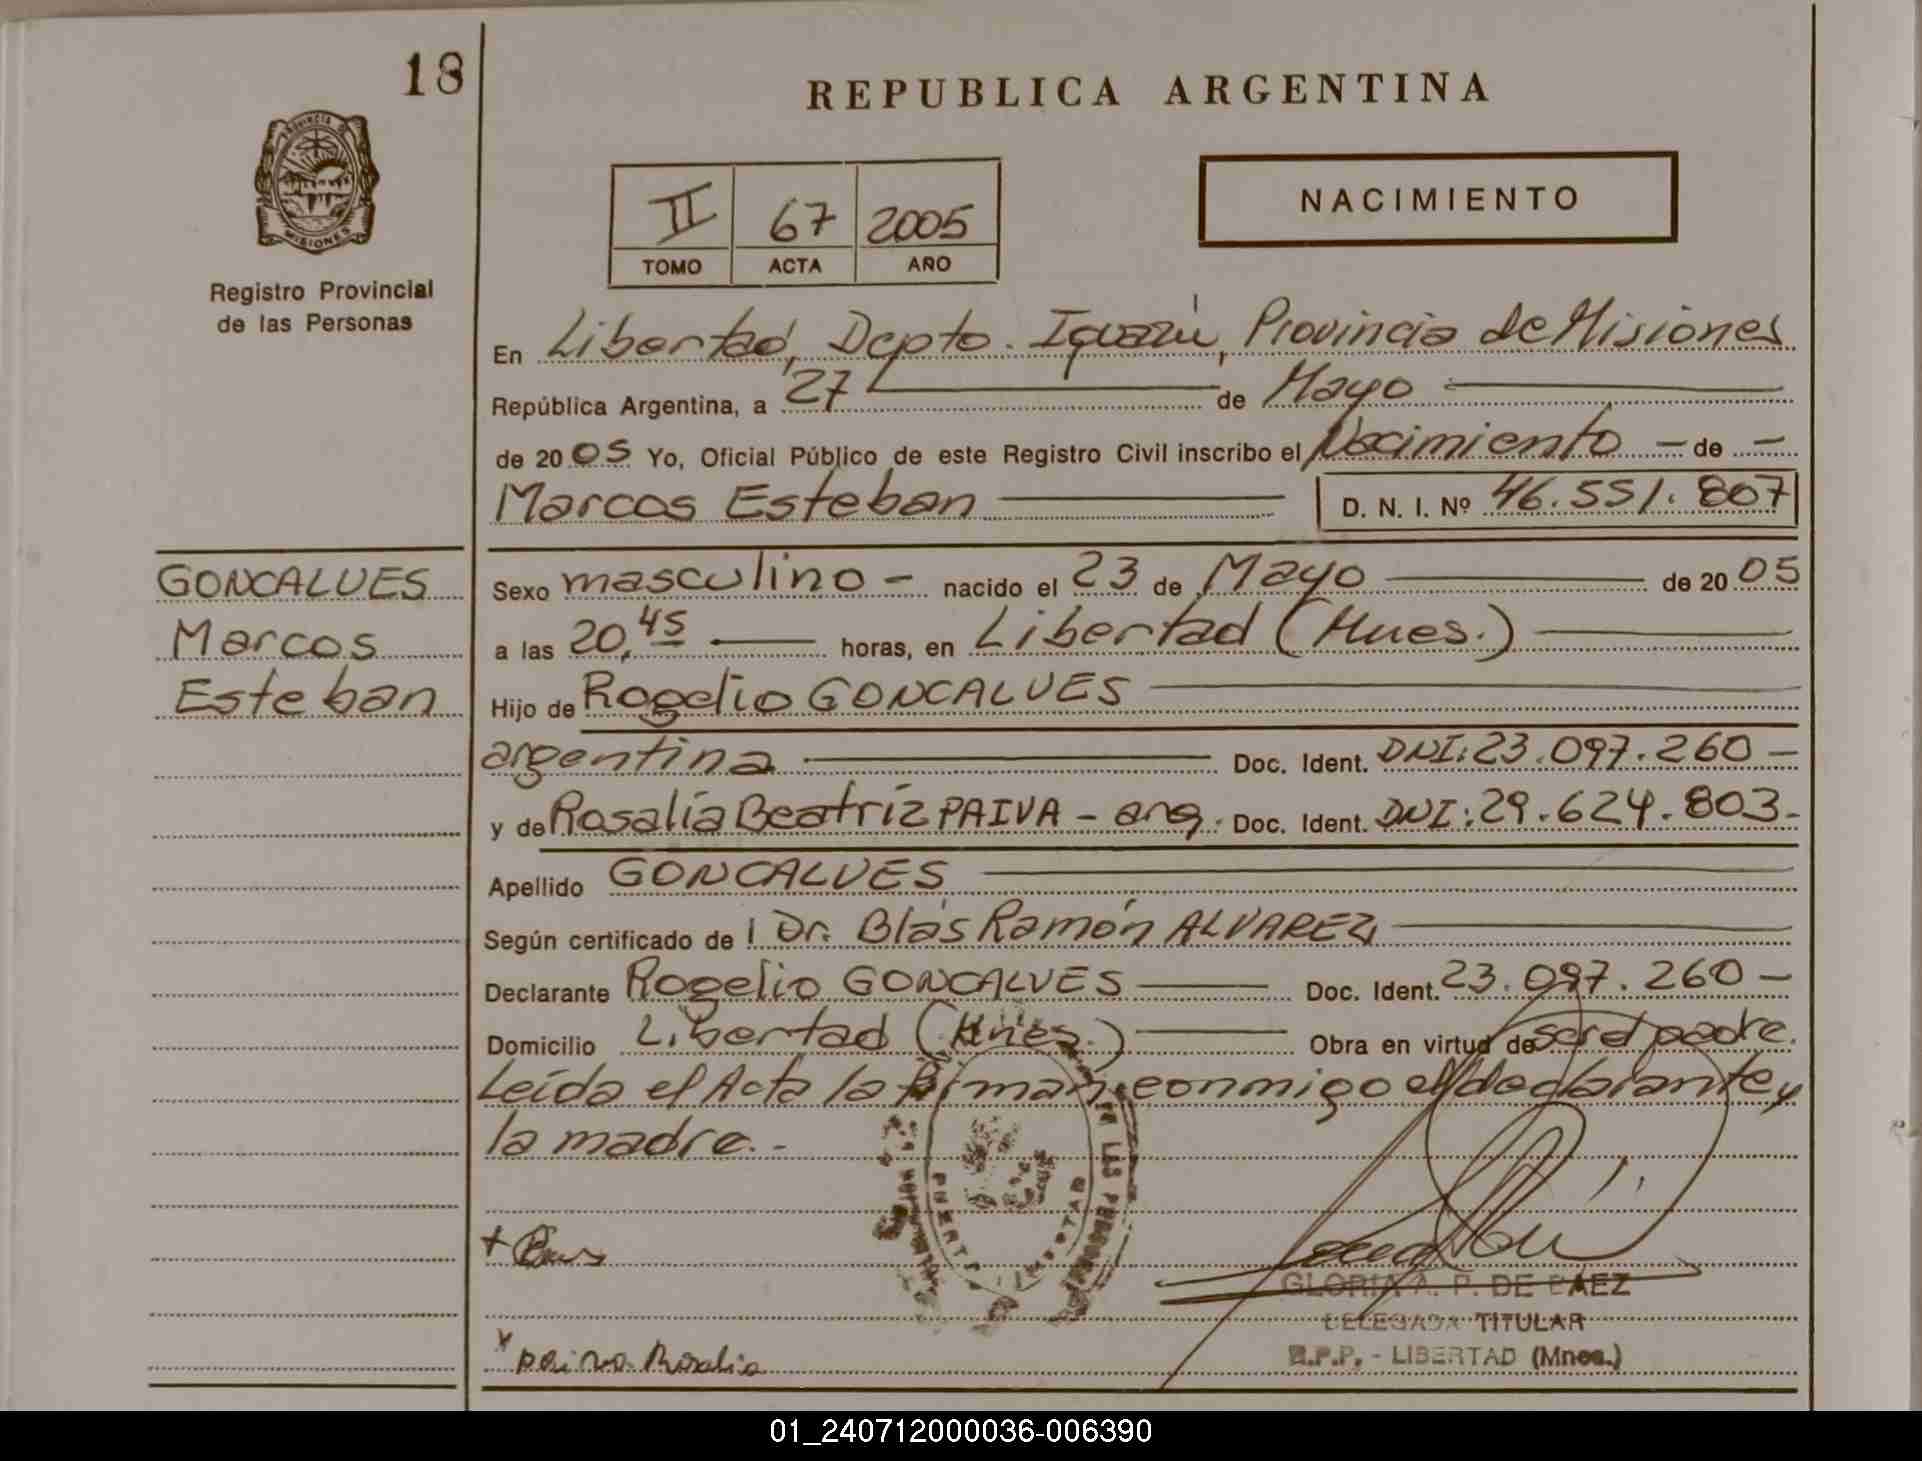 18
REPUBLICA ARGENTINA
PROVINCIA DE
MISIONES
Registro Provincial
de las Personas
II 67 2005
TOMO ACTA AÑO
NACIMIENTO
En Libertad, Depto. Iguazú, Provincia de Misiones
República Argentina, a 27 de Mayo
de 2005 Yo, Oficial Público de este Registro Civil inscribo el Nacimiento - de -
Marcos Esteban D. N. I. Nº 46.551.807
GONCALVES
Marcos
Esteban
Sexo masculino - nacido el 23 de Mayo de 2005
a las 20,45 horas, en Libertad (Mnes.)
Hijo de Rogelio GONCALVES
argentina Doc. Ident. DNI: 23.097.260 -
y de Rosalía Beatríz PAIVA - arg. Doc. Ident. DNI: 29.624.803 -
Apellido GONCALVES
Según certificado de Dr. Blás Ramón ALVAREZ
Declarante Rogelio GONCALVES Doc. Ident. 23.097.260 -
Domicilio Libertad (Mnes.) Obra en virtud de ser el padre.
Leída el Acta la firman conmigo el declarante y
la madre. -
GLORIA A. P. DE BAEZ
DELEGADA TITULAR
R.P.P. - LIBERTAD (Mnes.)
paiva Rosalia
01_240712000036-006390